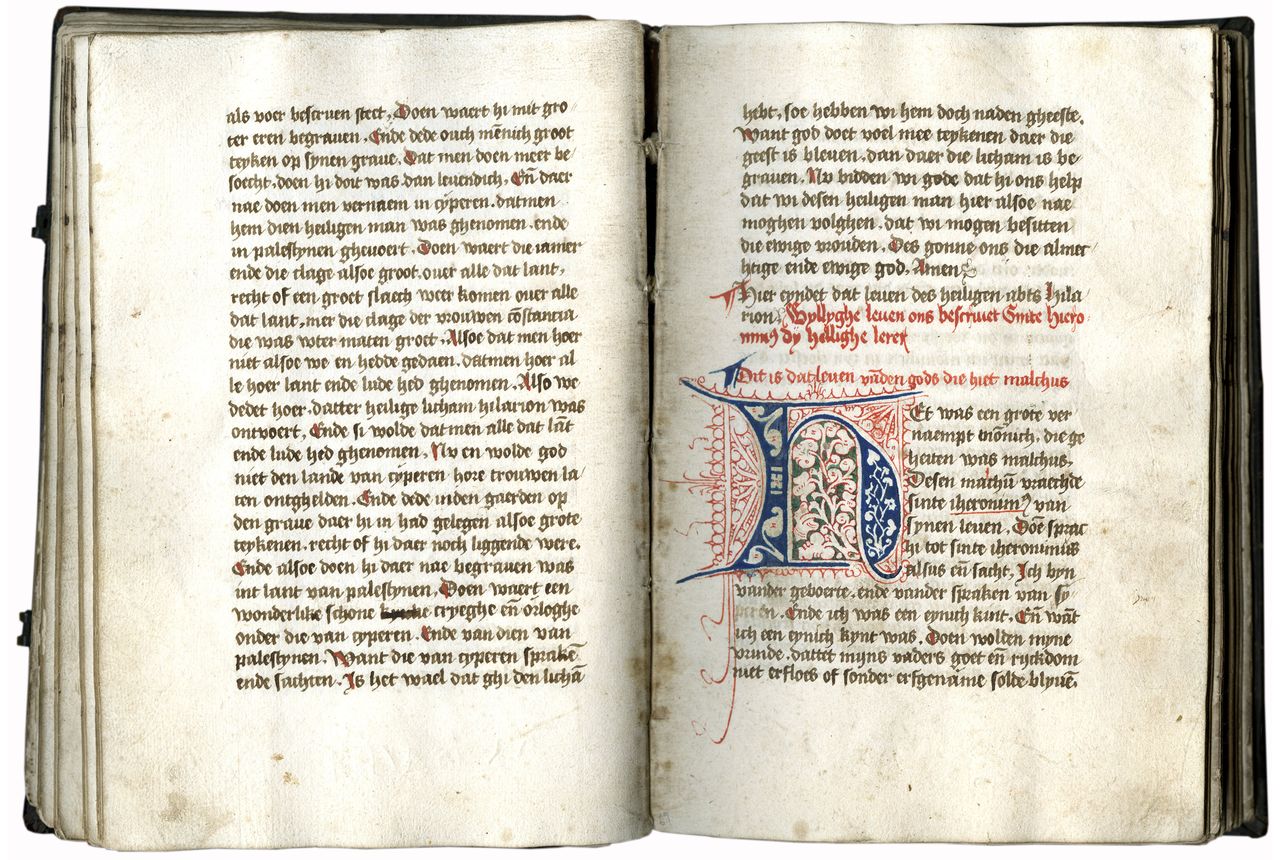 als voer bescruen steet. Doen waert hi mit gro
ter eren begrauen. Ende dede ouch mēnich groot
teyken op synen graue. Dat men doen meer be
soecht. doen hi doit was. dan leuendich. Eñ daer
nae doen men vernaem in cyperen. datmen
hem dien heiligen man was ghenomen. ende
in palestynen gheuoert. Doen waert die iamer
ende die clage alsoe groot. ouer alle dat lant,
recht of een groet slaech weer komen ouer alle
dat lant. mer die clage der vrouwen cōstancia
die was vter maten groet. Alsoe dat men hoer
niet alsoe we en hedde gedaen. datmen hoer al
le hoer lant ende lude hed ghenomen. Also we
dedet hoer. datter heilige licham hilarion was
ontvoert. Ende si wolde datmen alle dat lāt
ende lude hed ghenomen. Nv en wolde god
niet den lande van cyperen hore trouwen la
ten ontghelden. Ende dede inden gaerden op
den graue daer hi in had gelegen alsoe grote
teykenen. recht of hi daer noch liggende were.
Ende alsoe doen hi daer nae begrauen was
int lant van palestynen. Doen waert een
wonderlike schone cryeghe eñ orloghe
onder die van cyperen. Ende van dien van
palestynen. Want die van cyperen sprakē
ende sachten. Is het wael dat ghi den lichā
hebt, soe hebben wi hem doch naden gheeste.
Want god doet voel mee teykenen daer die
geest is bleuen. dan daer die licham is be
grauen. Nv bidden wi gode dat hi ons help
dat wi desen heiligen man hier alsoe nae
moghen volghen. dat wi mogen besitten
die ewige vrouden. Des gonne ons die almec
htige ende ewige god. Amen
Hier eyndet dat leuen des heiligen abts Hila
rion. Wyllyghe leuen ons bescruet Sinte Hiero
nimꝰ dy hellighe lerer
Dit is dat leuen vādem gods die hiet malchus
HEt was een grote ver
naempt mōnich, die ge
heiten was malchus.
Desen machū vraechde
sinte iheronimꝰ van
synen leuen. Doē sprac
hi tot sinte iheronimus
alsus eñ sacht, Ich byn
vander geboerte. ende vander spraken van sy
peren. Ende ich was een eynich kint. Eñ wāt
ich een eynich kynt was. Doen wolden myne
vrunde. dattet mijns vaders goet eñ ryckdom
niet erfloes of sonder erfgename solde blyuē.